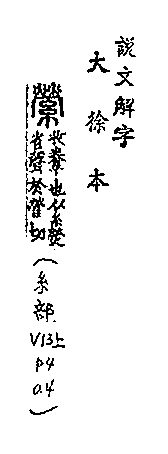 說文解字
大徐本
縈 收韏也从糸熒
省聲於營切
(糸部 V13上 P4 a.4)